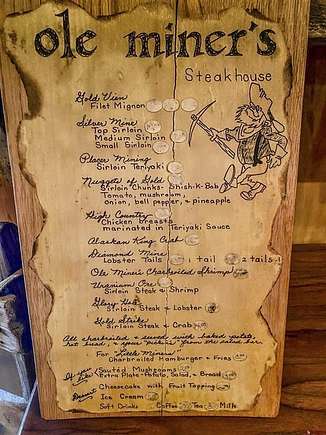 ole miner's
Steakhouse
Gold Vein
Filet Mignon
Silver Mine
Top Sirloin
Medium Sirloin
Small Sirloin
Placer Mining
Sirloin Teriyaki
Nuggets of Gold
Sirloin Chunks - Shish-K-Bab
Tomato, mushroom,
onion, bell pepper, & pineapple
High Country
Chicken breasts
marinated in Teriyaki Sauce
Alaskan King Crab
Diamond Mine
Lobster Tails 1 tail 2 tails
Ole Miner's Charbroiled Shrimp
Uranium Ore
Sirloin Steak & Shrimp
Glory Hole
Sirloin Steak & Lobster
Gold Strike
Sirloin Steak & Crab
All charbroiled & served with baked potato,
hot bread, & your from our salad bar.
For "Little Miners"
Charbroiled Hamburger & Fries
If you like: Sauted Mushrooms
Extra Plate - Potato, Salad, & Bread
Dessert Cheesecake with Fruit Topping
Ice Cream
Soft Drinks Coffee Tea Milk